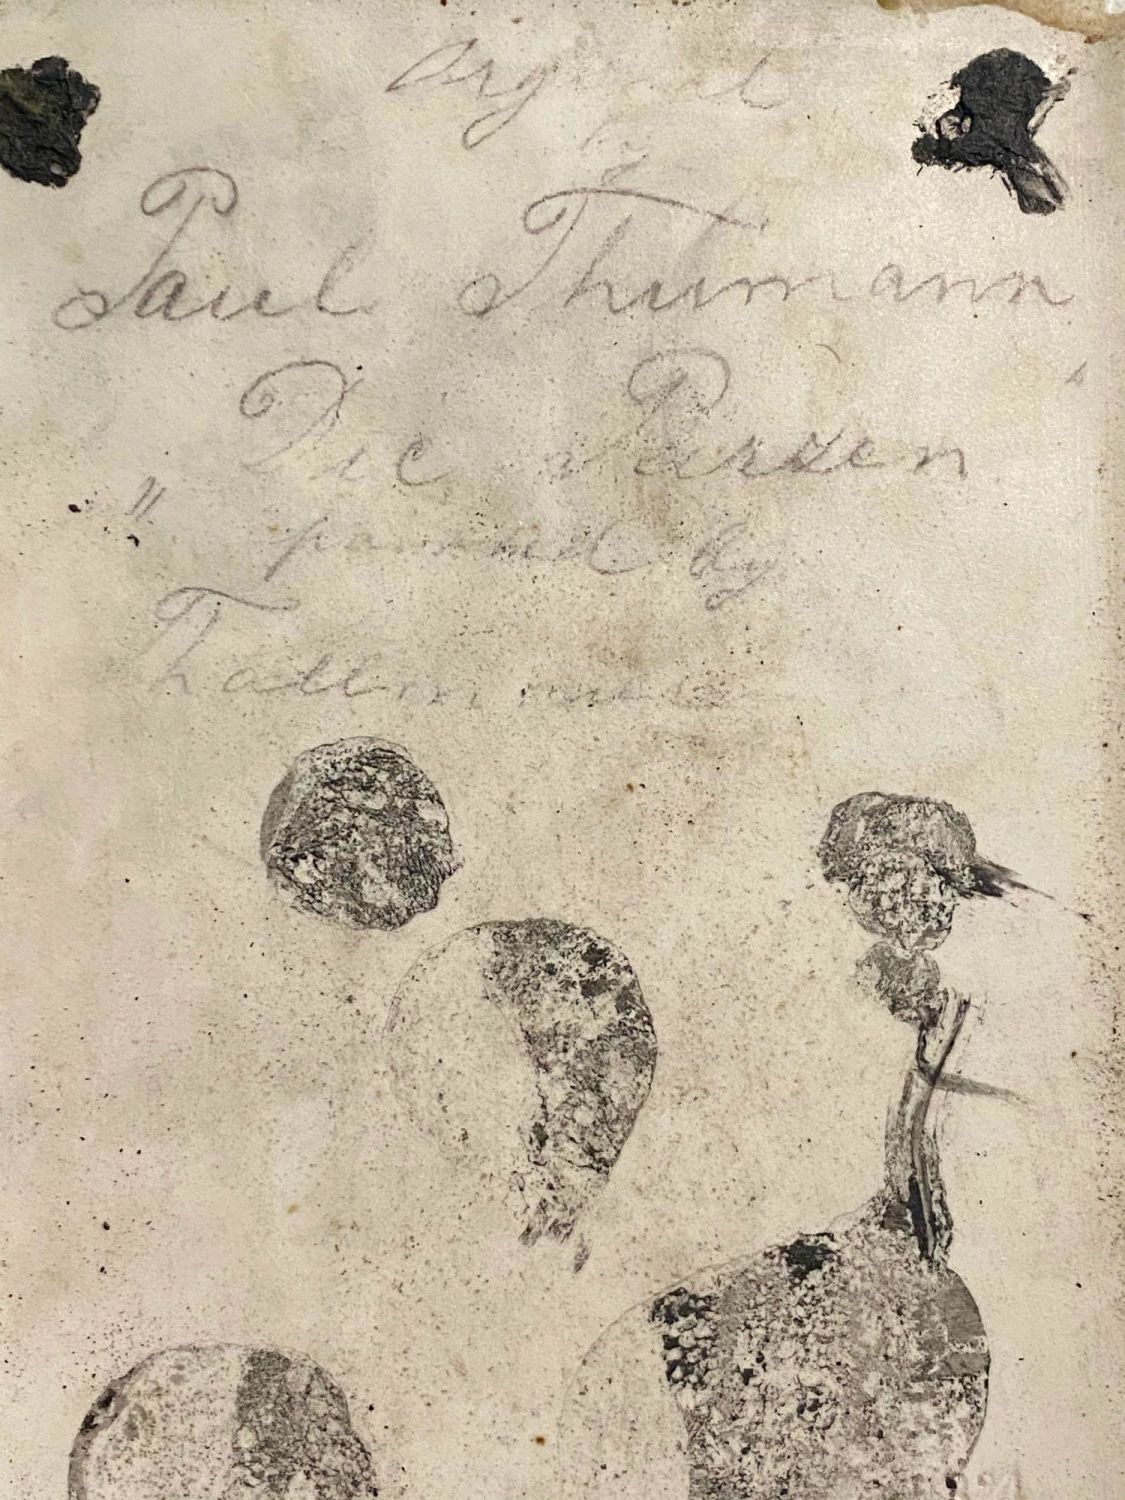 Original
by
Paul Thumann
Die Parzen
" painted by